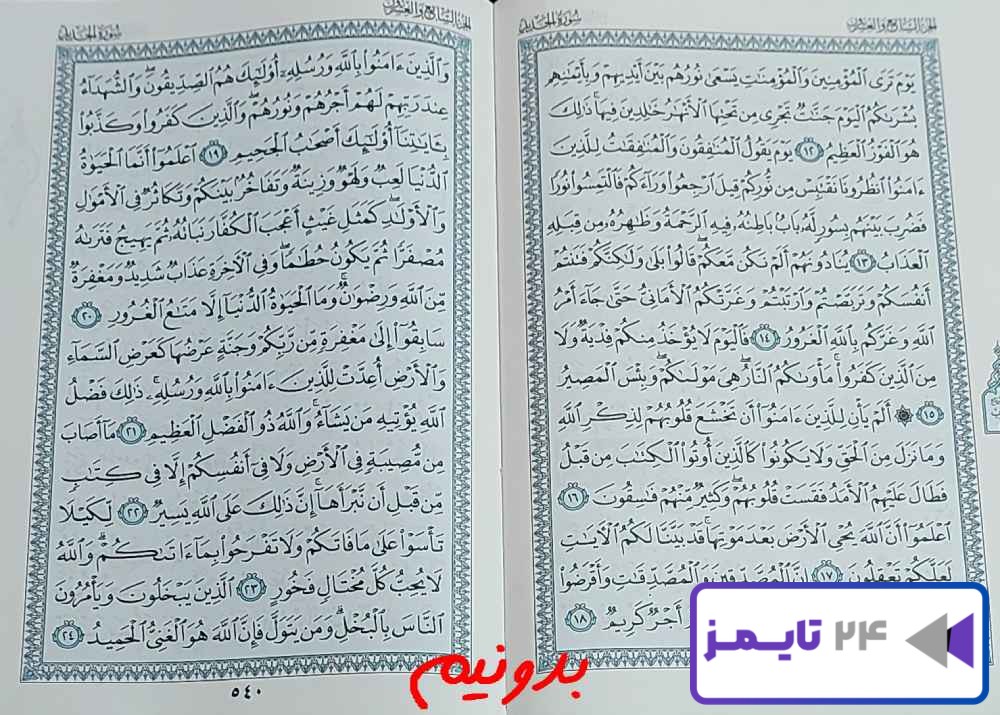 الجزء السابع والعشرون
سورة الحديد
يَوْمَ تَرَى الْمُؤْمِنِينَ وَالْمُؤْمِنَٰتِ يَسْعَىٰ نُورُهُم بَيْنَ أَيْدِيهِمْ وَبِأَيْمَٰنِهِم
بُشْرَىٰكُمُ الْيَوْمَ جَنَّٰتٌ تَجْرِي مِن تَحْتِهَا الْأَنْهَٰرُ خَٰلِدِينَ فِيهَا ۚ ذَٰلِكَ
هُوَ الْفَوْزُ الْعَظِيمُ ١٢ يَوْمَ يَقُولُ الْمُنَٰفِقُونَ وَالْمُنَٰفِقَٰتُ لِلَّذِينَ
ءَامَنُوا انظُرُونَا نَقْتَبِسْ مِن نُّورِكُمْ قِيلَ ارْجِعُوا وَرَآءَكُمْ فَالْتَمِسُوا نُورًا
فَضُرِبَ بَيْنَهُم بِسُورٍ لَّهُۥ بَابٌ بَاطِنُهُۥ فِيهِ الرَّحْمَةُ وَظَٰهِرُهُۥ مِن قِبَلِهِ
الْعَذَابُ ١٣ يُنَادُونَهُمْ أَلَمْ نَكُن مَّعَكُمْ ۖ قَالُوا بَلَىٰ وَلَٰكِنَّكُمْ فَتَنتُمْ
أَنفُسَكُمْ وَتَرَبَّصْتُمْ وَارْتَبْتُمْ وَغَرَّتْكُمُ الْأَمَانِيُّ حَتَّىٰ جَآءَ أَمْرُ
اللَّهِ وَغَرَّكُم بِاللَّهِ الْغَرُورُ ١٤ فَالْيَوْمَ لَا يُؤْخَذُ مِنكُمْ فِدْيَةٌ وَلَا
مِنَ الَّذِينَ كَفَرُوا ۚ مَأْوَىٰكُمُ النَّارُ ۖ هِيَ مَوْلَىٰكُمْ ۖ وَبِئْسَ الْمَصِيرُ
١٥ ۞ أَلَمْ يَأْنِ لِلَّذِينَ ءَامَنُوا أَن تَخْشَعَ قُلُوبُهُمْ لِذِكْرِ اللَّهِ
وَمَا نَزَلَ مِنَ الْحَقِّ وَلَا يَكُونُوا كَالَّذِينَ أُوتُوا الْكِتَٰبَ مِن قَبْلُ
فَطَالَ عَلَيْهِمُ الْأَمَدُ فَقَسَتْ قُلُوبُهُمْ ۖ وَكَثِيرٌ مِّنْهُمْ فَٰسِقُونَ ١٦
اعْلَمُوا أَنَّ اللَّهَ يُحْيِي الْأَرْضَ بَعْدَ مَوْتِهَا ۚ قَدْ بَيَّنَّا لَكُمُ الْآيَٰتِ
لَعَلَّكُمْ تَعْقِلُونَ ١٧ إِنَّ الْمُصَّدِّقِينَ وَالْمُصَّدِّقَٰتِ وَأَقْرَضُوا
أَجْرٌ كَرِيمٌ ١٨
الجزء السابع والعشرون
سورة الحديد
وَالَّذِينَ ءَامَنُوا بِاللَّهِ وَرُسُلِهِۦٓ أُولَٰٓئِكَ هُمُ الصِّدِّيقُونَ ۖ وَالشُّهَدَآءُ
عِندَ رَبِّهِمْ لَهُمْ أَجْرُهُمْ وَنُورُهُمْ ۖ وَالَّذِينَ كَفَرُوا وَكَذَّبُوا
بِـَٔايَٰتِنَآ أُولَٰٓئِكَ أَصْحَٰبُ الْجَحِيمِ ١٩ اعْلَمُوا أَنَّمَا الْحَيَوٰةُ
الدُّنْيَا لَعِبٌ وَلَهْوٌ وَزِينَةٌ وَتَفَاخُرٌ بَيْنَكُمْ وَتَكَاثُرٌ فِي الْأَمْوَٰلِ
وَالْأَوْلَٰدِ ۖ كَمَثَلِ غَيْثٍ أَعْجَبَ الْكُفَّارَ نَبَاتُهُۥ ثُمَّ يَهِيجُ فَتَرَىٰهُ
مُصْفَرًّا ثُمَّ يَكُونُ حُطَٰمًا ۖ وَفِي الْآخِرَةِ عَذَابٌ شَدِيدٌ وَمَغْفِرَةٌ
مِّنَ اللَّهِ وَرِضْوَٰنٌ ۚ وَمَا الْحَيَوٰةُ الدُّنْيَآ إِلَّا مَتَٰعُ الْغُرُورِ ٢٠
سَابِقُوٓا إِلَىٰ مَغْفِرَةٍ مِّن رَّبِّكُمْ وَجَنَّةٍ عَرْضُهَا كَعَرْضِ السَّمَآءِ
وَالْأَرْضِ أُعِدَّتْ لِلَّذِينَ ءَامَنُوا بِاللَّهِ وَرُسُلِهِۦ ۚ ذَٰلِكَ فَضْلُ
اللَّهِ يُؤْتِيهِ مَن يَشَآءُ ۚ وَاللَّهُ ذُو الْفَضْلِ الْعَظِيمِ ٢١ مَآ أَصَابَ
مِن مُّصِيبَةٍ فِي الْأَرْضِ وَلَا فِيٓ أَنفُسِكُمْ إِلَّا فِي كِتَٰبٍ
مِّن قَبْلِ أَن نَّبْرَأَهَآ ۚ إِنَّ ذَٰلِكَ عَلَى اللَّهِ يَسِيرٌ ٢٢ لِّكَيْلَا
تَأْسَوْا عَلَىٰ مَا فَاتَكُمْ وَلَا تَفْرَحُوا بِمَآ ءَاتَىٰكُمْ ۗ وَاللَّهُ
لَا يُحِبُّ كُلَّ مُخْتَالٍ فَخُورٍ ٢٣ الَّذِينَ يَبْخَلُونَ وَيَأْمُرُونَ
النَّاسَ بِالْبُخْلِ ۗ وَمَن يَتَوَلَّ فَإِنَّ اللَّهَ هُوَ الْغَنِيُّ الْحَمِيدُ ٢٤
٥٤٠
بدونیم
۲۴ تایمز